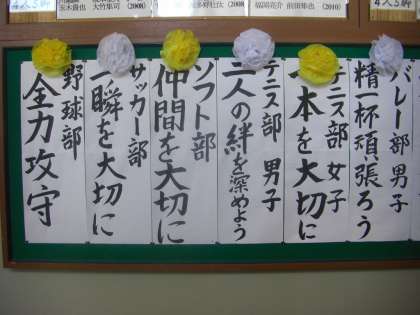 バレー部 男子
精一杯頑張ろう
テニス部 女子
一本を大切に
テニス部 男子
二人の絆を深めよう
ソフト部
仲間を大切に
サッカー部
一瞬を大切に
野球部
全力攻守
(2008)
(2008)
(2010)